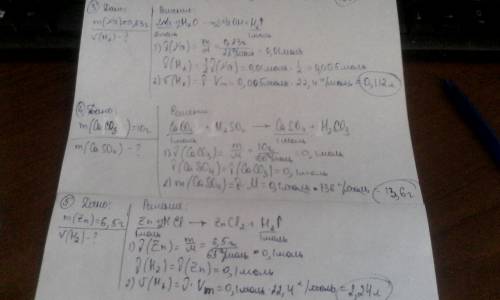 ③ Дано: Решение:
m(Na)=0,23г
V(H₂) - ?
2Na + 2H₂O → 2NaOH + H₂↑
2моль 1моль
1) ν(Na) = m/M = 0,23г / 23г/моль = 0,01моль
ν(H₂) = ½ν(Na) = 0,01моль · ½ = 0,005моль
2) V(H₂) = ν · Vm = 0,005моль · 22,4л/моль = 0,112л
④ Дано: Решение:
m(CaCO₃)=10г
m(CaSO₄) - ?
CaCO₃ + H₂SO₄ → CaSO₄ + H₂CO₃
1моль 1моль
1) ν(CaCO₃) = m/M = 10г / 100г/моль = 0,1моль
ν(CaSO₄) = ν(CaCO₃) = 0,1моль
2) m(CaSO₄) = ν · M = 0,1моль · 136г/моль = 13,6г
⑤ Дано: Решение:
m(Zn)=6,5г
V(H₂) - ?
Zn + 2HCl → ZnCl₂ + H₂↑
1моль 1моль
1) ν(Zn) = m/M = 6,5г / 65г/моль = 0,1моль
ν(H₂) = ν(Zn) = 0,1моль
2) V(H₂) = ν · Vm = 0,1моль · 22,4л/моль = 2,24л